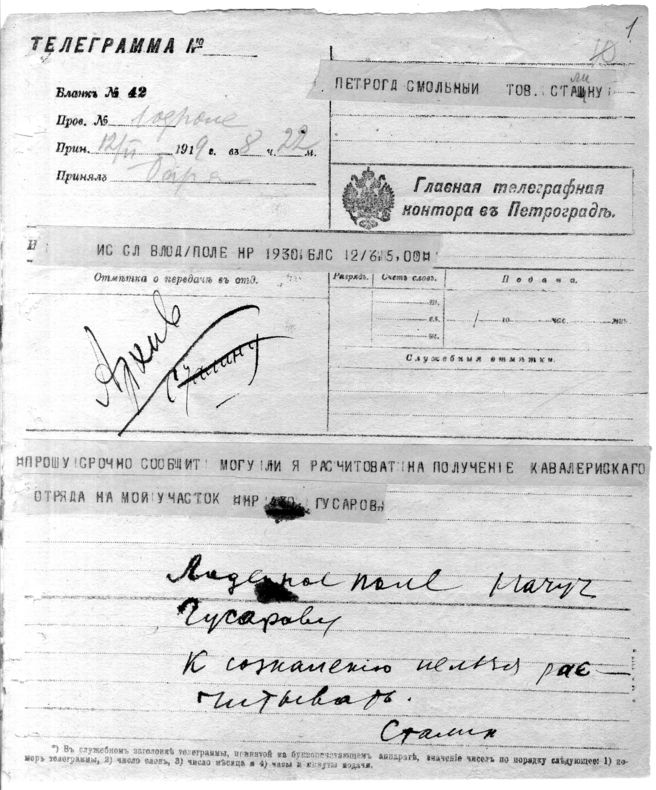 1
ТЕЛЕГРАММА №
10
Бланкъ № 42
ПЕТРОГД СМОЛЬНЫЙ ТОВ. СТАЛИНУ
Пров. №
Прин. 12/VI 1919 г. въ 8 ч. 22 м.
Принялъ
Главная телеграфная
контора въ Петроградѣ.
ИС СЛ ВЛОД/ПОЛЕ НР 1930 БЛС 12/6 5,00¤
Отмѣтка о передачѣ въ отд.
Разрядъ. Счетъ словъ. Подана.
го час. мин.
Служебныя отмѣтки.
Архив
Сталину
¤ПРОШУ СРОЧНО СООБЩИТ МОГУ ЛИ Я РАСЧИТОВАТ НА ПОЛУЧЕНИЕ КАВАЛЕРИСКАГО
ОТРЯДА НА МОЙ УЧАСТОК ¤НР ГУСАРОВ¤
Лодейное поле
Гусарову
К сожалению нельзя рас-
читывать.
Сталин
*) Въ служебномъ заголовкѣ телеграммы, принятой на буквопечатающемъ аппаратѣ, значеніе чиселъ по порядку слѣдующее: 1) но-
меръ телеграммы, 2) число словъ, 3) число мѣсяца и 4) часы и минуты подачи.